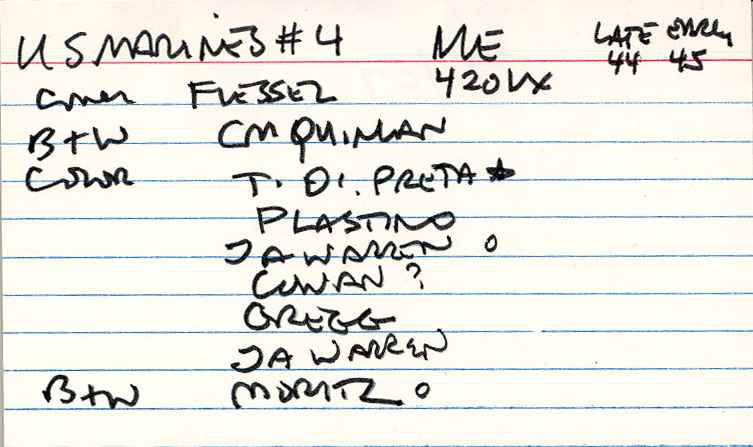 US MARINES #4 ME LATE EARLY
420LX 44 45
COVER FLESSEL
B+W CM QUINLAN
COLOR T. DI. PRETA ★
PLASTINO
JA WARREN o
COWAN ?
GREGG
JA WARREN
B+W MORITZ o